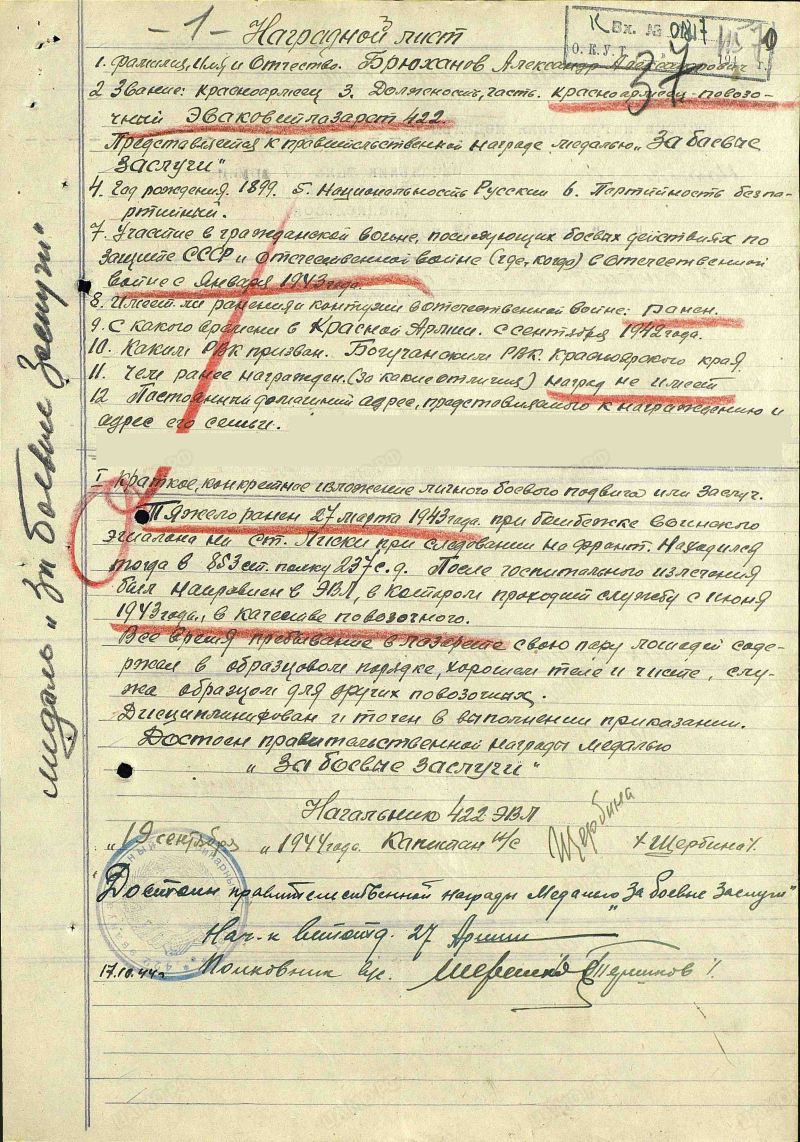 - 1 -
Наградной лист
К Вх. № 01417
О.К.У.Т.
37
1. Фамилия, Имя и Отчество. Брюханов Александр Александрович
2 Звание: красноармеец 3. Должность, часть. красноармеец-повозо-
чный Эваковетлазарет 422.
Представляется к правительственной награде медалью „За боевые
Заслуги"
4. Год рождения. 1899. 5. Национальность Русский 6. Партийность беспа-
ртийный.
7. Участие в гражданской войне, последующих боевых действиях по
защите СССР и отечественной войне (где, когда) в отечественной
войне с Января 1943 года.
8. Имеет ли ранения и контузии в отечественной войне: Ранен.
9. С какого времени в Красной Армии. С сентября 1942 года.
10. Каким РВК призван. Богучанским РВК. Красноярского края.
11. Чем ранее награжден. (за какие отличия) наград не имеет
12 Постоянный домашний адрес, представляемого к награждению и
адрес его семьи.
I Краткое, конкретное изложение личного боевого подвига или заслуг.
Тяжело ранен 27 марта 1943 года. при бомбежке воинского
эшалона на ст. Лиски при следовании на фронт. Находился
тогда в 853 ст. полку 237 с.д. После госпитального излечения
был направлен в ЭВЛ, в котором проходит службу с июня
1943 года, в качестве повозочного.
Все время пребывание в лазарете свою пару лошадей соде-
ржал в образцовом порядке, хорошем теле и чисте, слу-
жа образцом для других повозочных.
Дисциплинирован и точен в выполнении приказании.
Достоен правительственной награды медалью
„За боевые заслуги"
Начальник 422 ЭВЛ
„19 сентября „ 1944 года. Капитан в/с Щербина /Щербина/.
Достоин правительственной награды Медалью „За боевые заслуги"
Нач-к ветотд. 27 Армии
17.10.44г Полковник в/с.
медаль „За боевые Заслуги"